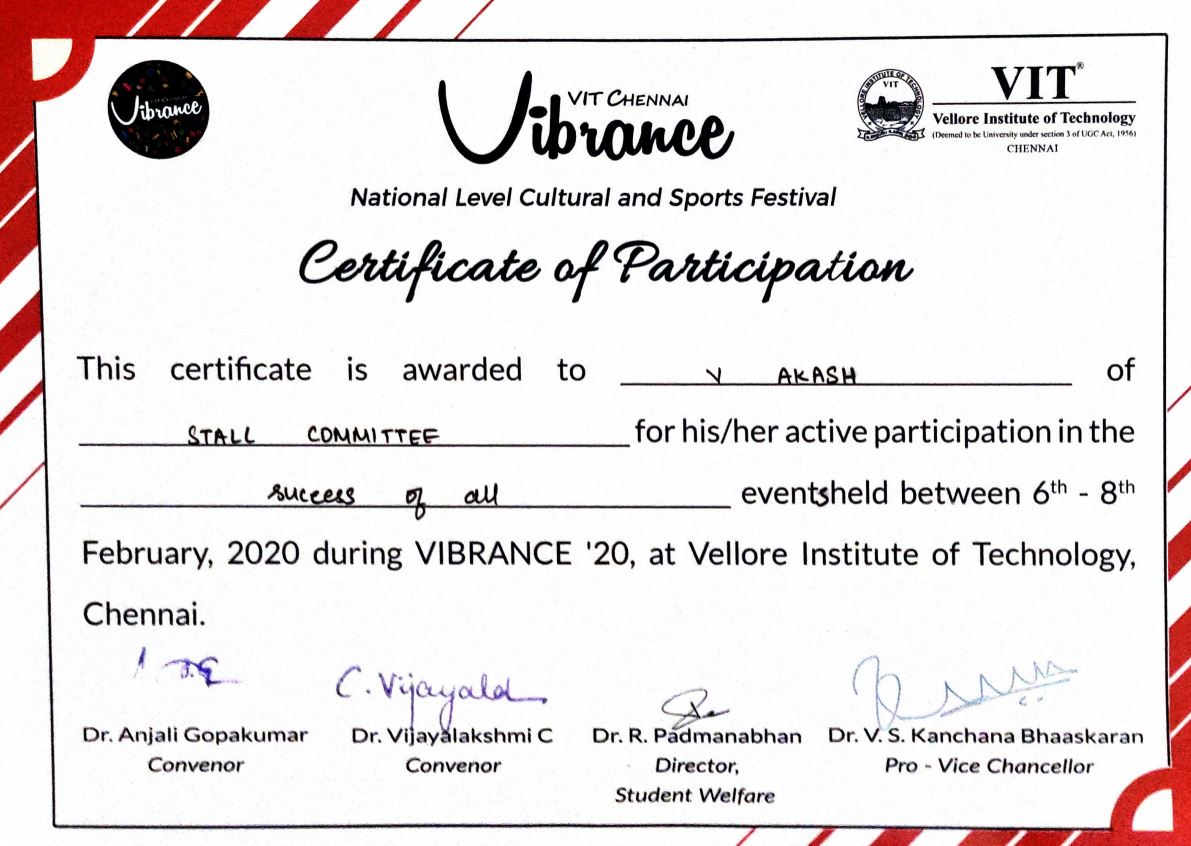 Vibrance
VIT CHENNAI
Vibrance
VELLORE INSTITUTE OF TECHNOLOGY
VIT
VIT®
Vellore Institute of Technology
(Deemed to be University under section 3 of UGC Act, 1956)
CHENNAI
National Level Cultural and Sports Festival
Certificate of Participation
This certificate is awarded to V AKASH of
STALL COMMITTEE for his/her active participation in the
success of all eventsheld between 6th - 8th
February, 2020 during VIBRANCE '20, at Vellore Institute of Technology,
Chennai.
C. Vijayald
Dr. Anjali Gopakumar Dr. Vijayalakshmi C Dr. R. Padmanabhan Dr. V. S. Kanchana Bhaaskaran
Convenor Convenor Director, Pro - Vice Chancellor
Student Welfare